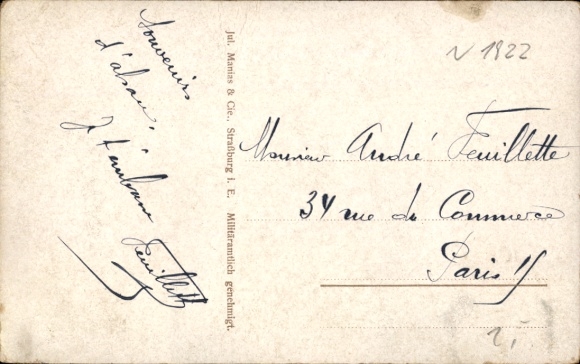 Souvenirs
d'alsace,
Je t'embrasse
Feuillette
Jul. Manias & Cie., Straßburg i. E. Militäramtlich genehmigt.
N 1822
Monsieur André Feuillette
34 rue du Commerce
Paris